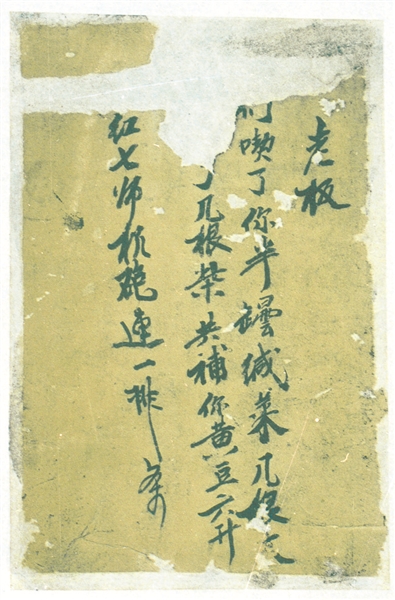 老板
们喫了你半罎缄菜几根
了几根柴共補你黄豆六升
红七师机砲連一排条